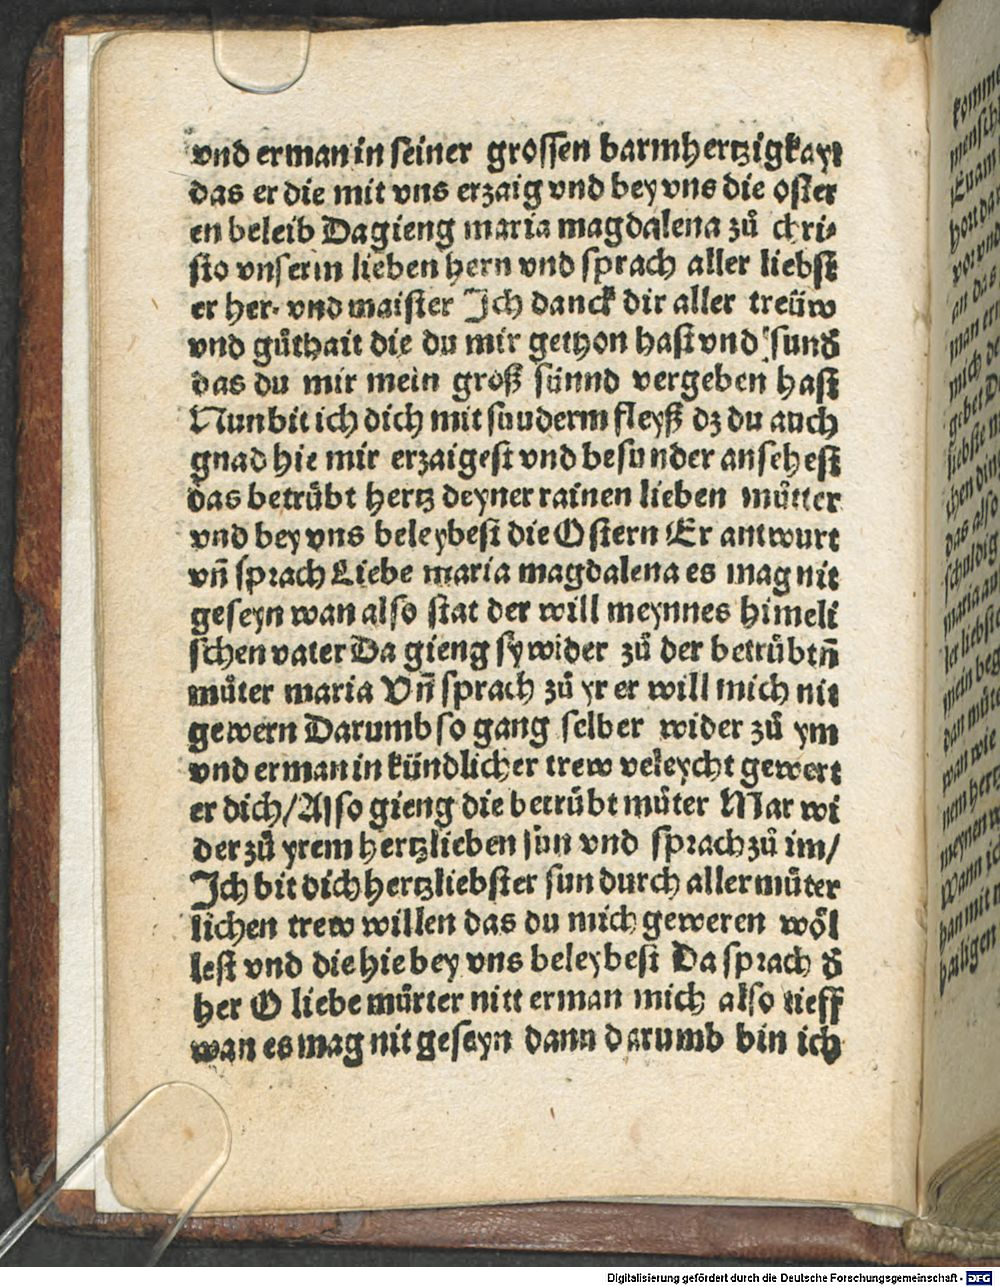 vnd erman in seiner grossen barmhertzigkayt
das er die mit vns erzaig vnd bey vns die oster
en beleib Da gieng maria magdalena zů chri⸗
sto vnserm lieben hern vnd sprach aller liebst
er her· vnd maister Ich danck dir aller treüw
vnd gůthait die du mir gethon hast vnd sund̄
das du mir mein groß sünnd vergeben hast
Nun bit ich dich mit suuderm fleyß dz du auch
gnad hie mir erzaigest vnd besunder ansehest
das betrübt hertz deyner rainen lieben můtter
vnd bey vns beleybest die Ostern Er antwurt
vn̄ sprach Liebe maria magdalena es mag nit
geseyn wan also stat der will meynnes himeli
schen vater Da gieng sy wider zů der betrübtn̄
můter maria Vn̄ sprach zů yr er will mich nit
gewern Darumb so gang selber wider zů ym
vnd erman in kündlicher trew veleycht gewert
er dich/ Also gieng die betrübt můter Mar wi
der zů yrem hertzlieben sun vnd sprach zů im/
Ich bit dich hertzliebster sun durch aller můter
lichen trew willen das du mich geweren wöl
lest vnd die hie bey vns beleybest Da sprach d̄
her O liebe můrter nitt erman mich also tieff
wan es mag nit geseyn dann darumb bin ich
Digitalisierung gefördert durch die Deutsche Forschungsgemeinschaft - DFG